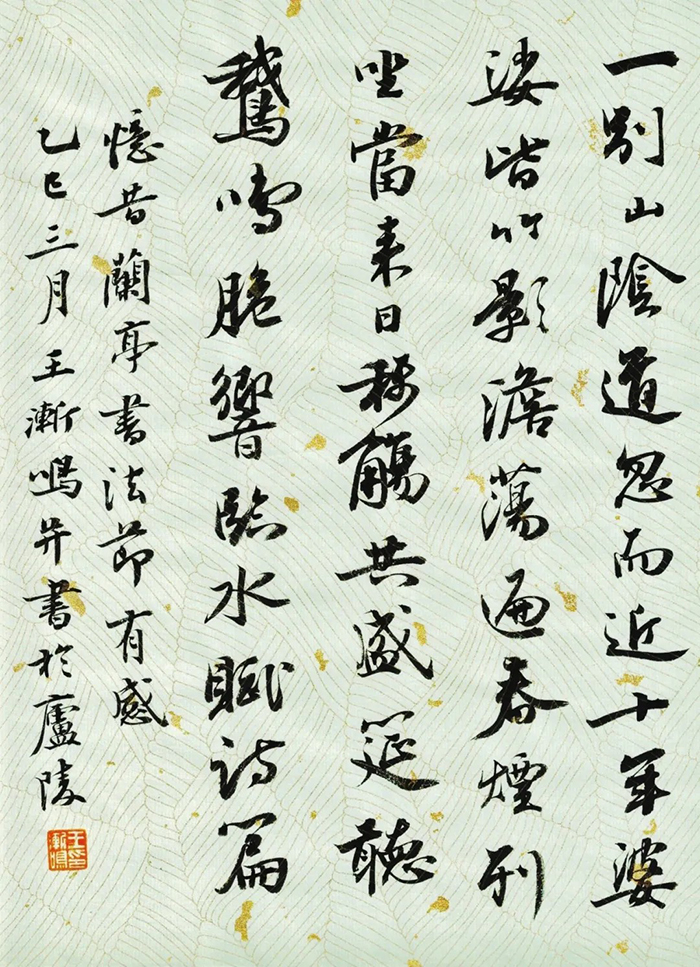 一別山陰道忽而近十年婆
娑皆竹影澹蕩遍春煙列
坐當来日移觴共盛筵聽
鵝鳴脆響臨水賦诗篇
憶昔蘭亭書法節有感
乙巳三月王漸鳴并書於廬陵
王漸鳴印